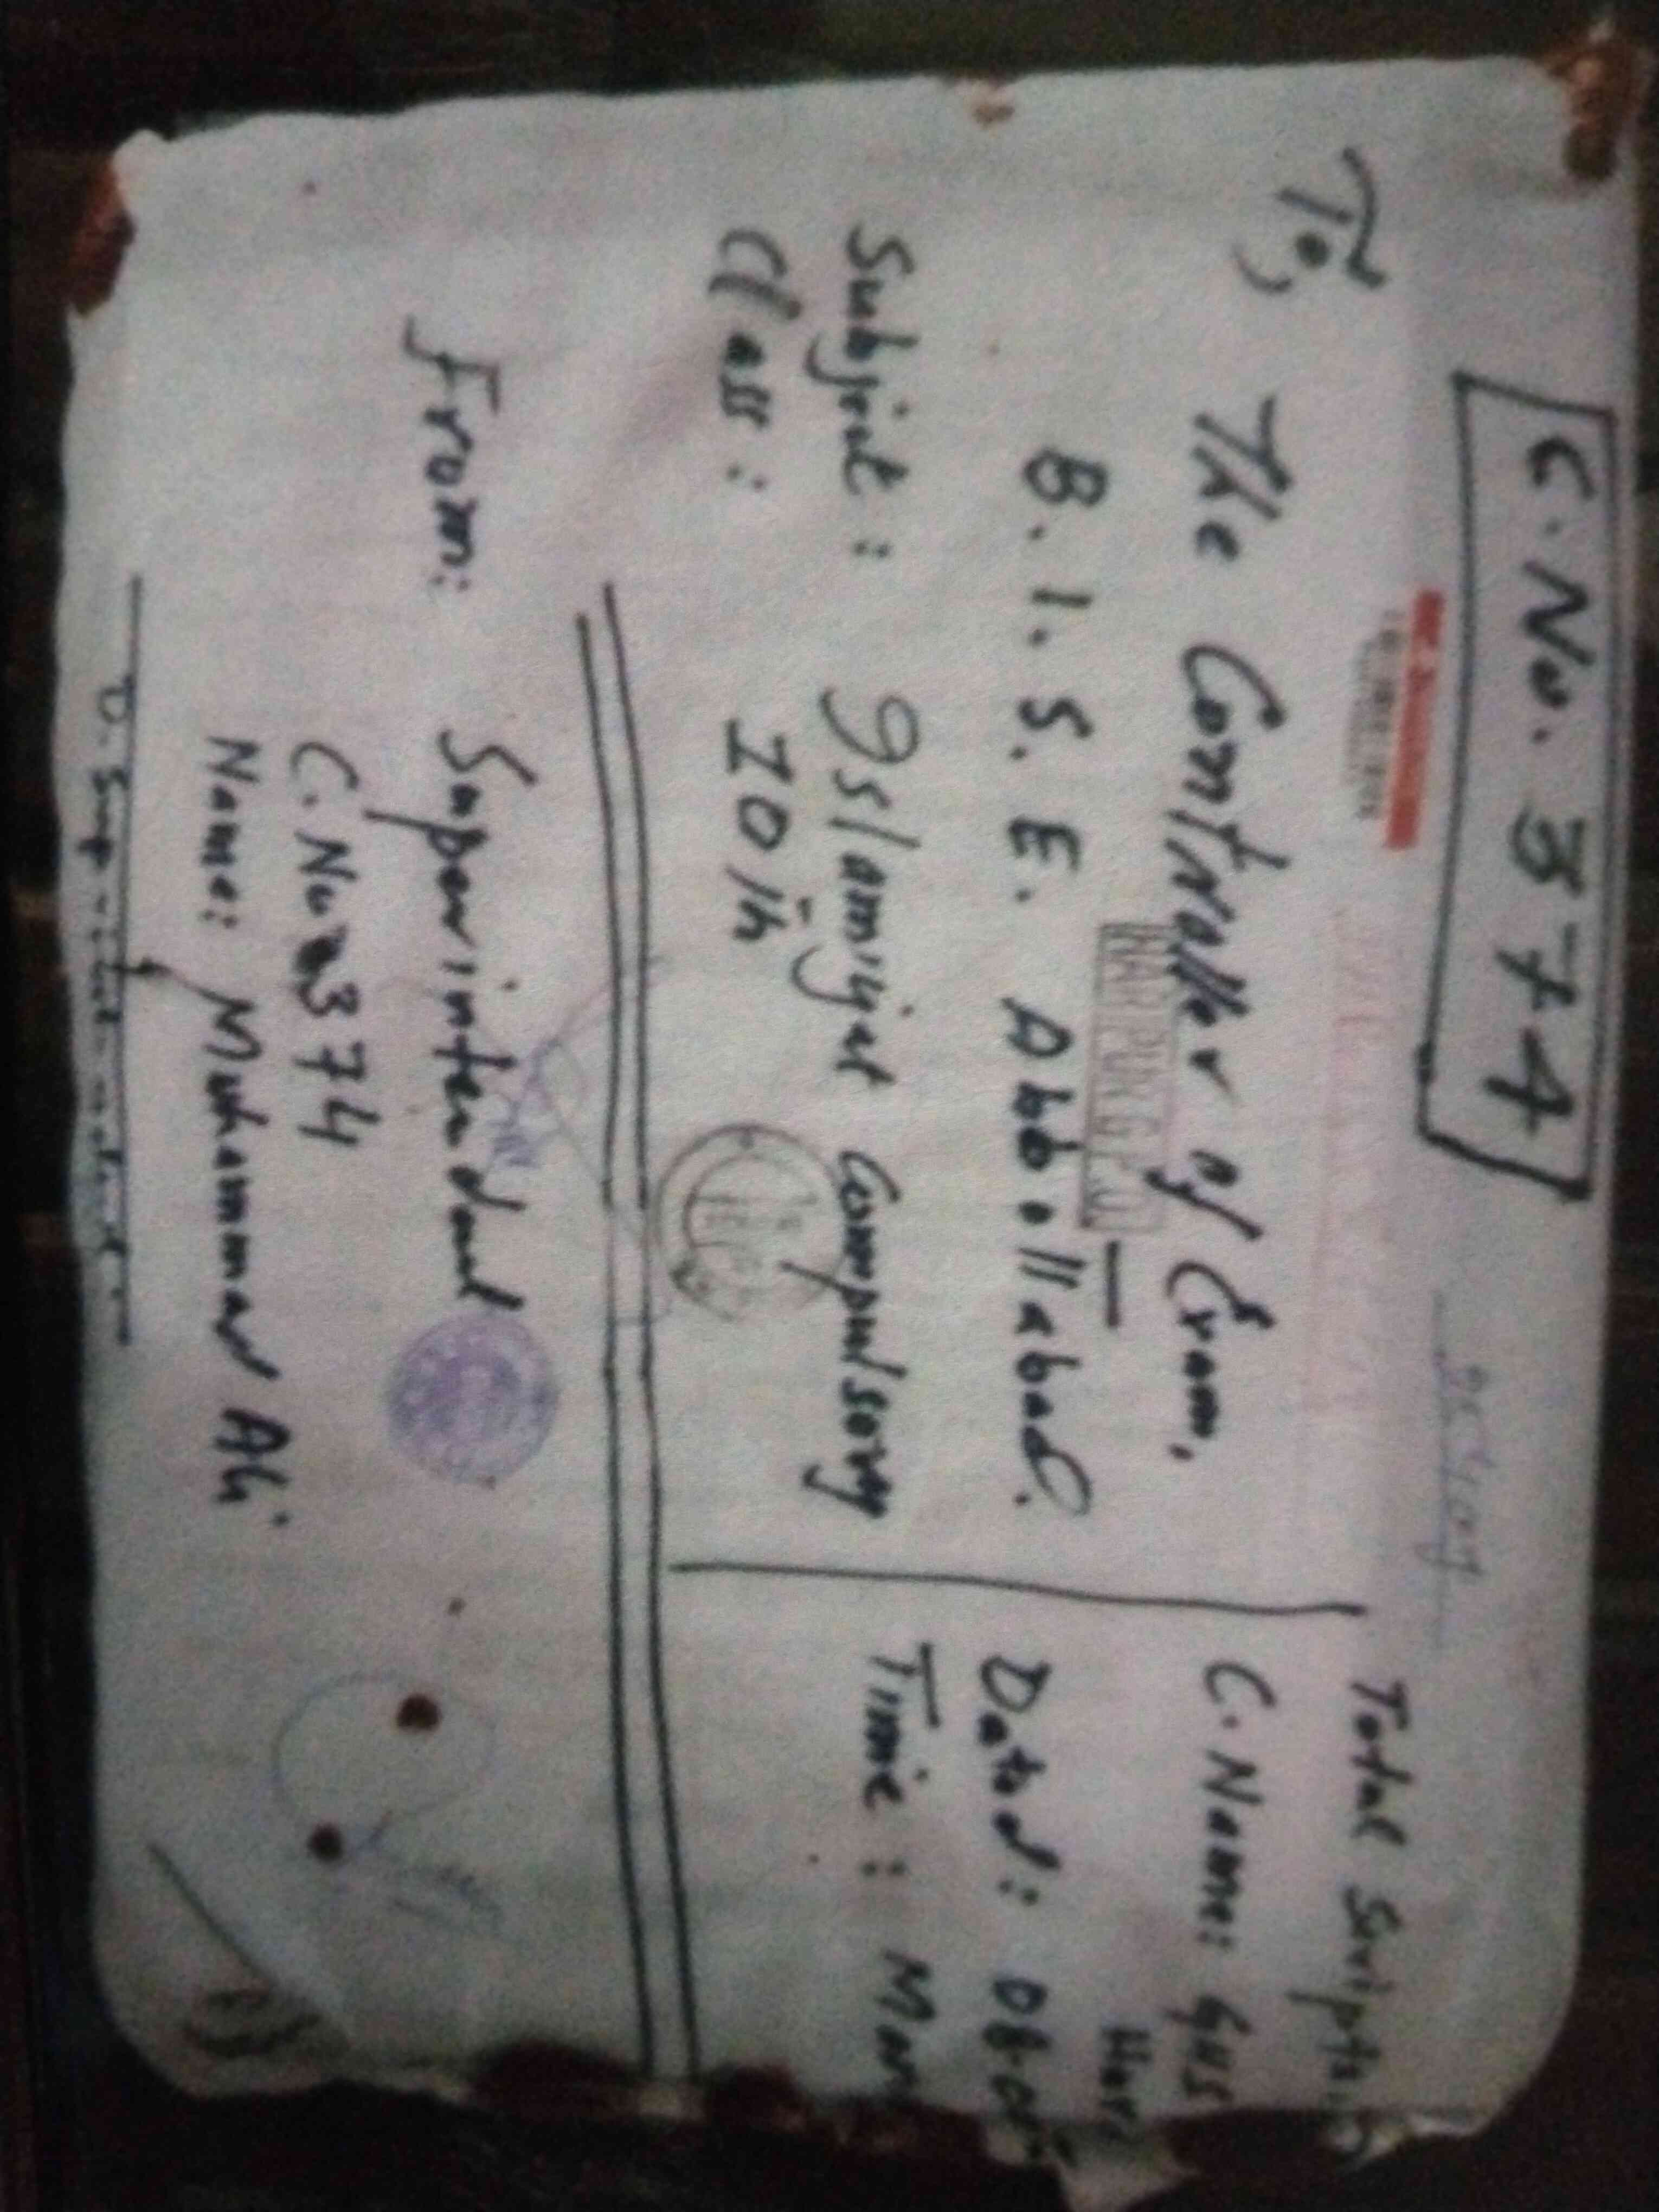 C. No. 374
To,
The Controller of Exam,
B. I. S. E. Abbottabad.
HARIPUR G.P.O
Subject : Islamiyat Compulsory
Class : 10th
Total Scripts:
C. Name: GHS
Hari
Dated: 08-0
Time : Mor
From:
Superintendent
C. No 374
Name: Muhammad Ali